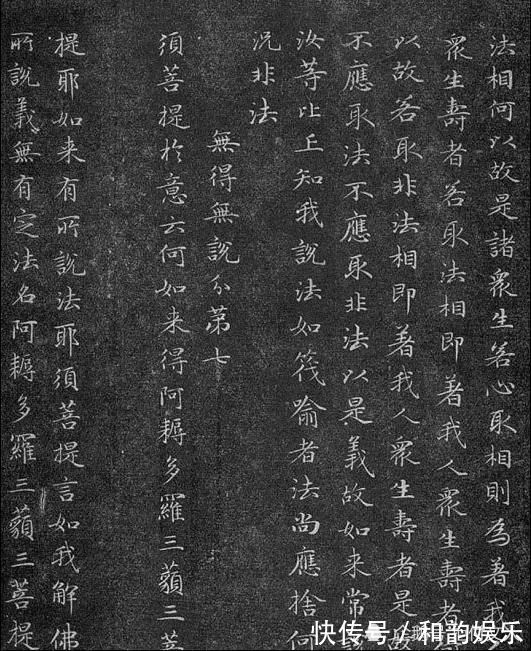 法相何以故是諸衆生若心取相則為著我
衆生壽者若取法相即著我人衆生壽者
以故若取非法相即著我人衆生壽者是故
不應取法不應取非法以是義故如来常說
汝等比丘知我說法如筏喻者法尚應捨何
況非法
無得無說分第七
須菩提於意云何如来得阿耨多羅三藐三菩
提耶如来有所說法耶須菩提言如我解佛
所說義無有定法名阿耨多羅三藐三菩提
快传号/和韵娱乐